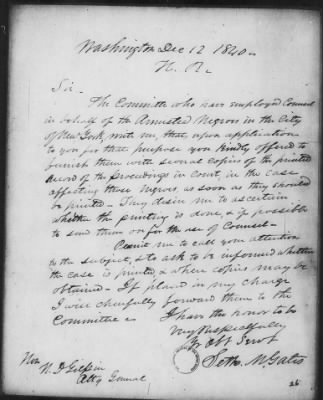 Washington Dec 12 1840
H. R.
Sir
The Committee who have employed Counsel
in behalf of the Amistad Negroes in the City
of New York, write me, that upon application
to you for that purpose you kindly offered to
furnish them with several copies of the printed
record of the proceedings in Court, in the case
affecting these Negroes, as soon as they should
be printed - They desire me to ascertain
whether the printing is done, & if possible
to send them on for the use of Counsel -
Permit me to call your attention
to the subject, & to ask to be informed whether
the case is printed & where copies may be
obtained - If placed in my charge
I will cheerfully forward them to the
Committee
I have the honor to be
Very Respectfully
Yr Obt Servt
Seth M. Gates
Hon
H. D Gilpin
Atty General
26